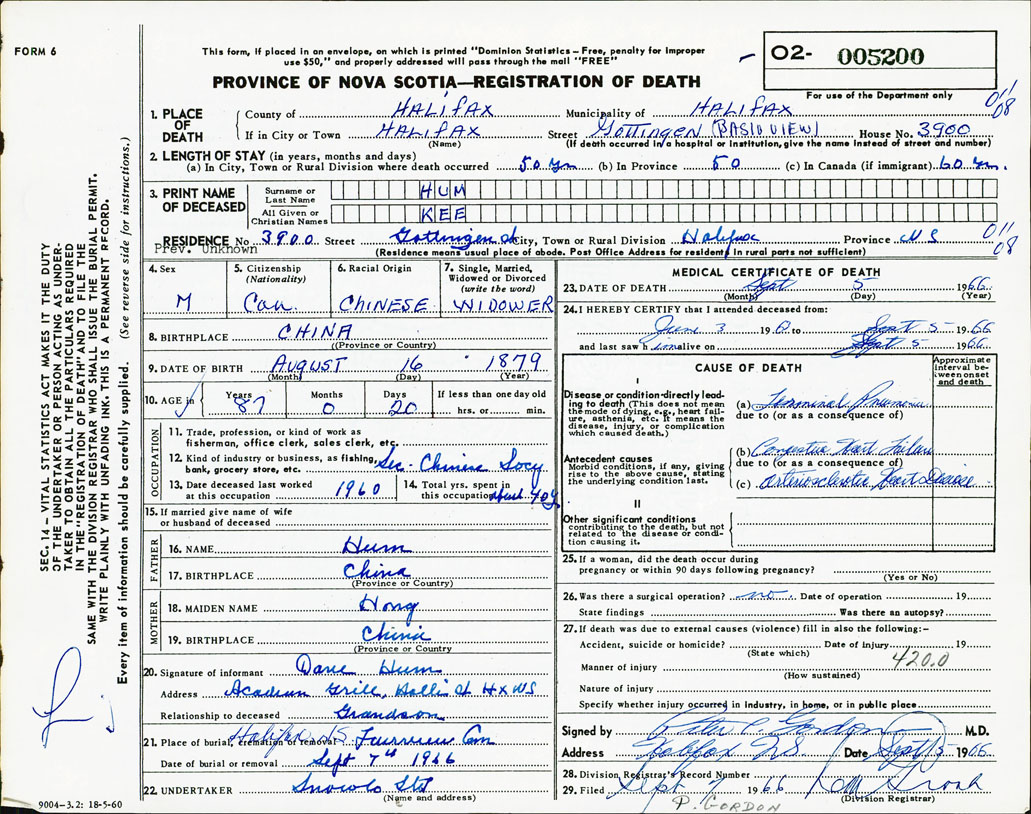 FORM 6
This form, if placed in an envelope, on which is printed "Dominion Statistics – Free, penalty for improper
use $50," and properly addressed will pass through the mail "FREE"
PROVINCE OF NOVA SCOTIA—REGISTRATION OF DEATH
02- 005200
For use of the Department only
011
08
1. PLACE OF DEATH
County of HALIFAX Municipality of HALIFAX
If in City or Town HALIFAX Street Gottingen (BASIN VIEW) House No. 3900
(Name) (If death occurred in a hospital or institution, give the name instead of street and number)
2. LENGTH OF STAY (in years, months and days)
(a) In City, Town or Rural Division where death occurred 50 yrs (b) In Province 50 (c) In Canada (if immigrant) 60 yrs.
3. PRINT NAME OF DECEASED
Surname or Last Name HUM
All Given or Christian Names KEE
RESIDENCE No 3900 Street Gottingen St City, Town or Rural Division Halifax Province N S
011
08
Prev. Unknown
(Residence means usual place of abode. Post Office Address for residents in rural parts not sufficient)
4. Sex
M
5. Citizenship
(Nationality)
Can.
6. Racial Origin
CHINESE
7. Single, Married, Widowed or Divorced
(write the word)
WIDOWER
8. BIRTHPLACE CHINA
(Province or Country)
9. DATE OF BIRTH AUGUST 16 1879
(Month) (Day) (Year)
10. AGE in Years 87 Months 0 Days 20 If less than one day old
hrs. or min.
OCCUPATION
11. Trade, profession, or kind of work as
fisherman, office clerk, sales clerk, etc.
12. Kind of industry or business, as fishing,
bank, grocery store, etc. Sec. Chinese Socy
13. Date deceased last worked
at this occupation 1960
14. Total yrs. spent in
this occupation about 40 y
15. If married give name of wife
or husband of deceased
FATHER
16. NAME Hum
17. BIRTHPLACE China
(Province or Country)
MOTHER
18. MAIDEN NAME Hong
19. BIRTHPLACE China
(Province or Country)
20. Signature of informant Dave Hum
Address Acadian Grill, Hollis St Hx NS
Relationship to deceased Grandson
21. Place of burial, cremation or removal Halifax NS Fairview Cem
Date of burial or removal Sept 7th 1966
22. UNDERTAKER Snows Ltd
(Name and address)
MEDICAL CERTIFICATE OF DEATH
23. DATE OF DEATH Sept 5 1966
(Month) (Day) (Year)
24. I HEREBY CERTIFY that I attended deceased from:
June 3 196 to Sept 5 - 1966
and last saw him alive on Sept 5 1966
CAUSE OF DEATH
Approximate interval between onset and death
I
Disease or condition directly leading to death (This does not mean the mode of dying, e.g., heart failure, asthenia, etc. It means the disease, injury, or complication which caused death.)
(a) Terminal Pneumonia
due to (or as a consequence of)
Antecedent causes
Morbid conditions, if any, giving rise to the above cause, stating the underlying condition last.
(b) Congestive Heart Failure
due to (or as a consequence of)
(c) Arteriosclerotic Heart Disease
II
Other significant conditions
contributing to the death, but not related to the disease or condition causing it.
25. If a woman, did the death occur during
pregnancy or within 90 days following pregnancy?
(Yes or No)
26. Was there a surgical operation? no. Date of operation 19
State findings Was there an autopsy?
27. If death was due to external causes (violence) fill in also the following:–
Accident, suicide or homicide? Date of injury 19
(State which)
420.0
Manner of injury
(How sustained)
Nature of injury
Specify whether injury occurred in industry, in home, or in public place
Signed by Peter C. Gordon M.D.
Address Halifax N.S. Date Sept 5 1966
28. Division Registrar's Record Number
29. Filed Sept 7 1966
(Division Registrar)
P. GORDON
SEC. 14 – VITAL STATISTICS ACT MAKES IT THE DUTY
OF THE UNDERTAKER OR PERSON ACTING AS UNDER-
TAKER TO OBTAIN ALL THE PARTICULARS REQUIRED
IN THE "REGISTRATION OF DEATH" AND TO FILE THE
SAME WITH THE DIVISION REGISTRAR WHO SHALL ISSUE THE BURIAL PERMIT.
WRITE PLAINLY WITH UNFADING INK. THIS IS A PERMANENT RECORD.
Every item of information should be carefully supplied. (See reverse side for instructions.)
9004–3.2: 18-5-60